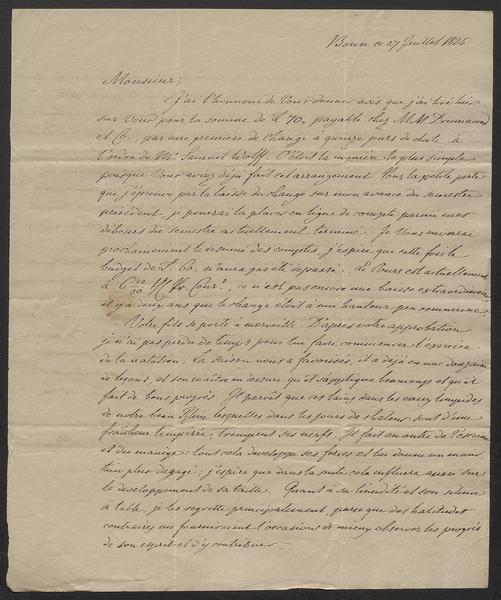 Bonn ce 27 Juillet 1825
Monsieur,
J'ai l'honneur de Vous donner avis que j'ai tiré hier
sur Vous pour la somme de £ 70, payable chez M.M.
et Co, par une première de change à quinze jours de date, à
l'ordre de Mr. Samuel Wolff. C'étoit la manière la plus simple
puisque Vous aviez déjà fait cet arrangement. Pour la petite perte
que j'éprouve par la baisse du change sur mon avance du semestre
précédent, je pourrai la placer en ligne de compte parmi mes
débours du semestre actuellement terminé. Je Vous enverrai
prochainement le résumé des comptes, j'espère que cette fois le
budget de L. 60, n'aura pas été dépassé. Le Cours est actuellement
à 6 22/30 ce n'est pas encore une baisse extraordinaire,
il y a deux ans que le change étoit à une hauteur peu commune.
Votre fils se porte à merveille. D'après votre approbation
je n'ai pas perdu de temps pour lui faire commencer l'exercice
de la natation; la saison nous a favorisés, il a déjà eu une douzaine
de leçons, et son maître m'assure qu'il s'applique beaucoup et qu'il
fait de bons progrès. Il paroît que ces bains dans les eaux limpides
de notre beau Rhin, lesquelles dans les jours de chaleur sont d'une
fraîcheur tempérée, trempent ses nerfs. Il fait en outre de l'escrime
et du manège: tout cela développe ses forces et lui donne un maintien
bien plus dégagé, j'espère que dans la suite cela influera aussi sur
le développement de sa taille. Quant à sa timidité et son silence
à table, je les regrette principalement, parce que des habitudes
contraires me fourniroient l'occasion de mieux observer les progrès
de son esprit et d'y contribuer.